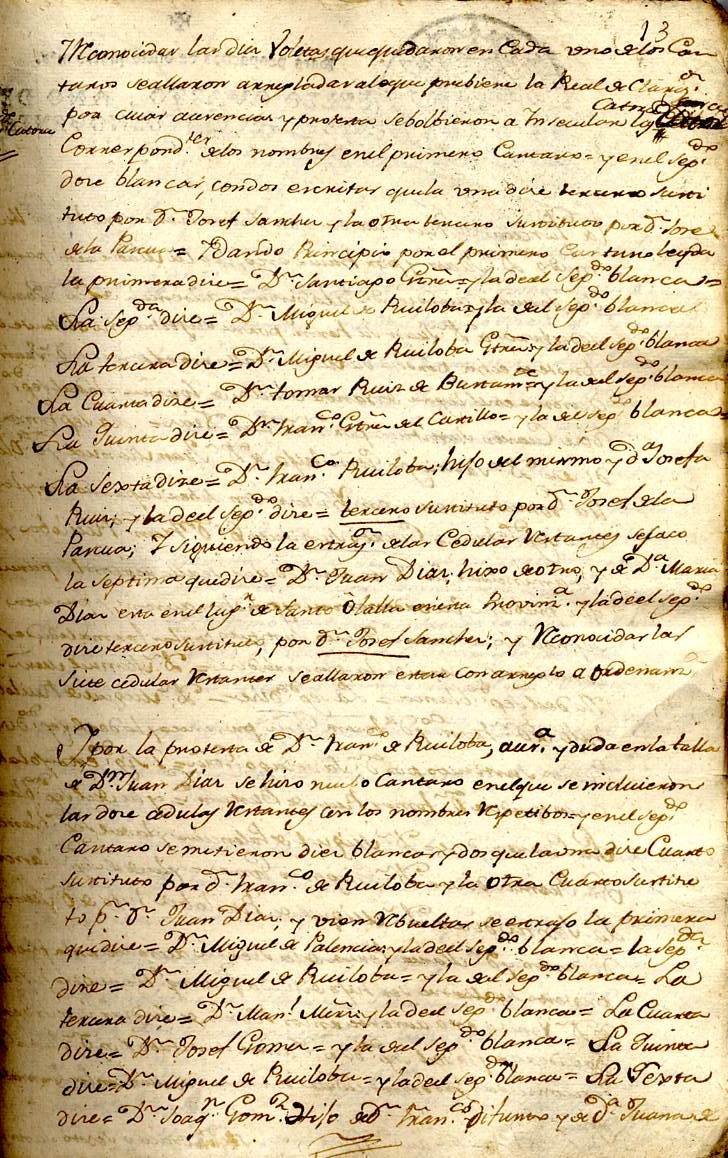 13
Rconocidas las diez voletas que quedaron en Cada uno de los Can
taros se allaron arregladas alo que previene la Real declaraz.on
por cuias ausencias y protesta se bolbieron a Insecular las Catorce
Catorce
Correspond.tes de los nombres en el primero Cantaro = y en el seg.do
doze blancas, con dos escritas que la una dize tercero susti
tuto por d.n Josef Sanchez y la otra tercero sustituto por d.n Josef
de la Parua = Y dando Principio por el primero Cantaro leyda
la primera dize = D.n Santiago = y la del Seg.do blanca =
La Seg.da dize = D.n Miguel de Ruiloba = y la del seg.do blanca
La tercera dize = D.n Miguel de Ruiloba y la del seg.do blanca
La Cuarta dize = D.n tomas Ruiz de Bustam.te = y la del seg.do blanca
La Quinta dize = D.n Fran.co del Castillo = y la del seg.do blanca =
La Sexta dize = D.n Fran.co Ruiloba, hijo del mismo y d.a Josefa
Ruiz; y la del seg.do dize = tercero sustituto por d.n Josef de la
Parua; Y siguiendo la extraz.on de las Cedulas Restantes se saco
la septima que dize = D.n Juan Diaz hixo de otro, y de D.a Maria
Diaz esta en el lug.r de Santa Olalla en esta Provinz.a y la del seg.do
dize tercero sustituto, por d.n Josef Sanchez; y Rconocidas las
siete cedulas Restantes se allaron estar con arreglo a ordenanz.a
Y por la protesta de D.n Fran.co de Ruiloba, aus.a y duda en la talla
de D.n Juan Diaz se hizo nuebo Cantaro en el que se incluieron
las doze cedulas Restantes con los nombres Respetibos = y en el seg.do
Cantaro se metieron diez blancas y dos que la una dize Cuarto
sustituto por d.n Fran.co de Ruiloba y la otra Cuarto sustitu
to p.r d.n Juan Diaz, y vien Rbueltas se extrajo la primera
que dize = D.n Miguel de Palencia y la del seg.do blanca = la seg.da
dize = D.n Miguel de Ruiloba = y la del seg.do blanca = La
tercera dize = D.n Man.l y la del seg.do blanca = La Cuarta
dize = D.n Josef Gomez = y la del seg.do blanca = La Quinta
dize = D.n Miguel de Ruiloba = y la del seg.do blanca = La Sexta
dize = D.n Joaq.n Gom.z Hijo de D.n Fran.co difunto y de d.a Juana de